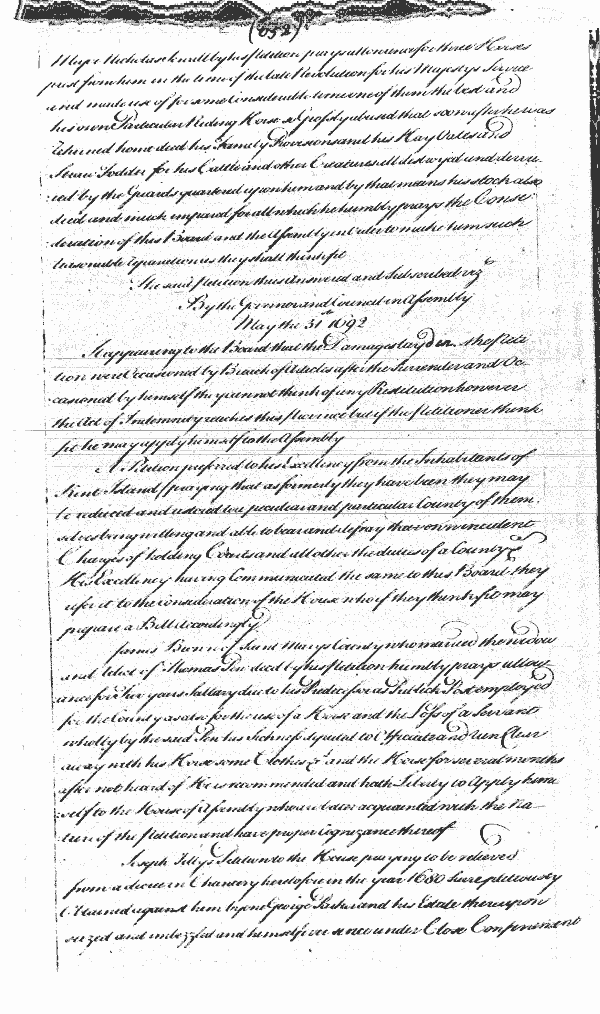 (052)
Major Nicholas Sewall by his Petition prays allowance for three Horses
prest from him in the time of the late Revolution for his Majestys Service
and made use of for some Considerable time one of them the best and
his own Particular Riding Horse so Grossly abused that soon after he was
returned home dead his Family Provisions and his Hay Oates and
Straw Fodder for his Cattle and other Creatures all destroyed and devou-
red by the Guards quartered upon him and by that means his stock also
dead and much impared for all which he humbly prays the Consi-
deration of this Board and the Assembly in Order to make him such
reasonable reparation as they shall think fit
The said Petition thus Answered and Subscribed vizt
By the Governor and Council in Assembly
May the 31st 1692
It appearing to the Board that the Damages layd in the Peti-
tion were Occasioned by Breach of Articles after the Surrender and Oc-
casioned by himself they cannot think of any Restitution however
the Act of Indemnity reaches this place not but if the Petitioner think
fit he may apply himself to the Assembly
A Petition preferred to his Excellency from the Inhabitants of
Kent Island praying that as formerly they have been they may
be reduced and restored to a peculiar and particular County of them-
selves being willing and able to bear and defray their own incident
Charges of holding Courts and all other the duties of a County &c
His Excellency having Communicated the same to this Board they
refer it to the consideration of the House who if they think fit may
prepare a Bill accordingly
James Burn of Saint Marys County who married the widow
and Relict of Thomas Pen deced by his Petition humbly prays allow-
ance for Two years Sallary due to his Predecessor as Publick Post employed
for the County as also for the use of a Horse and the Loss of a Servant
wholly by the said Pen his Sickness deputed to Officiate and run Clear
away with his Horse some Clothes &c and the Horse for several months
after not heard of He is recommended and hath Liberty to Apply him-
self to the House of Assembly who are better acquainted with the Na-
ture of the Petition and have proper Cognizance thereof
Joseph Tilly's Petition to the House praying to be relieved
from a decree in Chancery heretofore in the year 1680 Surreptitiously
Obtained against him by one George Parker and his Estate thereupon
seized and imbezzled and himself ever since under Close Confinement